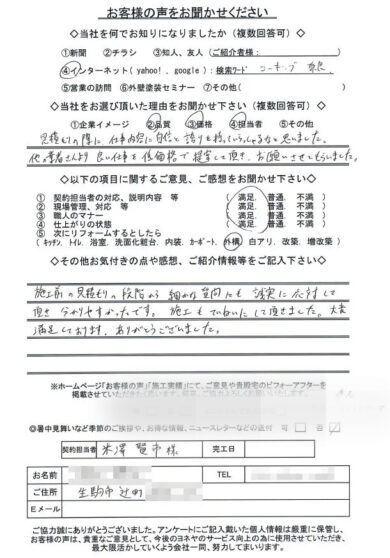 お客様の声をお聞かせください
◇当社を何でお知りになりましたか（複数回答可）◇
①新聞　②チラシ　③知人、友人（ご紹介者様：　　　）
④インターネット（yahoo!．google）：検索ワード　コーキング 奈良
⑤営業の訪問　⑥外壁塗装セミナー　⑦その他（　　　）
◇当社をお選び頂いた理由をお聞かせ下さい（複数回答可）◇
①企業イメージ　②品質　③価格　④担当者　⑤その他
見積もりの際に仕事内容に自信と誇りを持っていらっしゃるなと思いました。
他の業者さんより良い仕事を低価格で提案して頂き、お願いさせてもらいました。
◇以下の項目に関するご意見、ご感想をお聞かせ下さい◇
１　契約担当者の対応、説明内容　等　（　満足．普通．不満　）
２　現場管理、対応　等　（　満足．普通．不満　）
３　職人のマナー　（　満足．普通．不満　）
４　仕上がりの状態　（　満足．普通．不満　）
５　次にリフォームするとしたら
（キッチン．トイレ．浴室．洗面化粧台．内装．カーポート．外構．白アリ．改築．増改築）
◇その他お気付きの点や感想、ご紹介情報等をご記入下さい◇
施工前の見積もりの段階から細かな質問にも誠実に応対して
頂き分かりやすかったです。施工もていねいにして頂きました。大変
満足しております。ありがとうございました。
※ホームページ「お客様の声」「施工実績」にて、ご意見や貴殿宅のビフォーアフターを
掲載させていただきたく思います。
◎暑中見舞いなど季節のご挨拶や、お得な情報、ニュースレターなどの送付　可　否
契約担当者　米澤 賢市 様　完工日
お名前　TEL
ご住所　生駒市辻町
Ｅメール
ご協力誠にありがとうございました。アンケートにご記入戴いた個人情報は厳重に保管し、
お客様の声は、貴重なご意見として、今後のヨネヤのサービス向上の為に使用させていただき、
最大限活かしていくよう会社一同、努力してまいります。